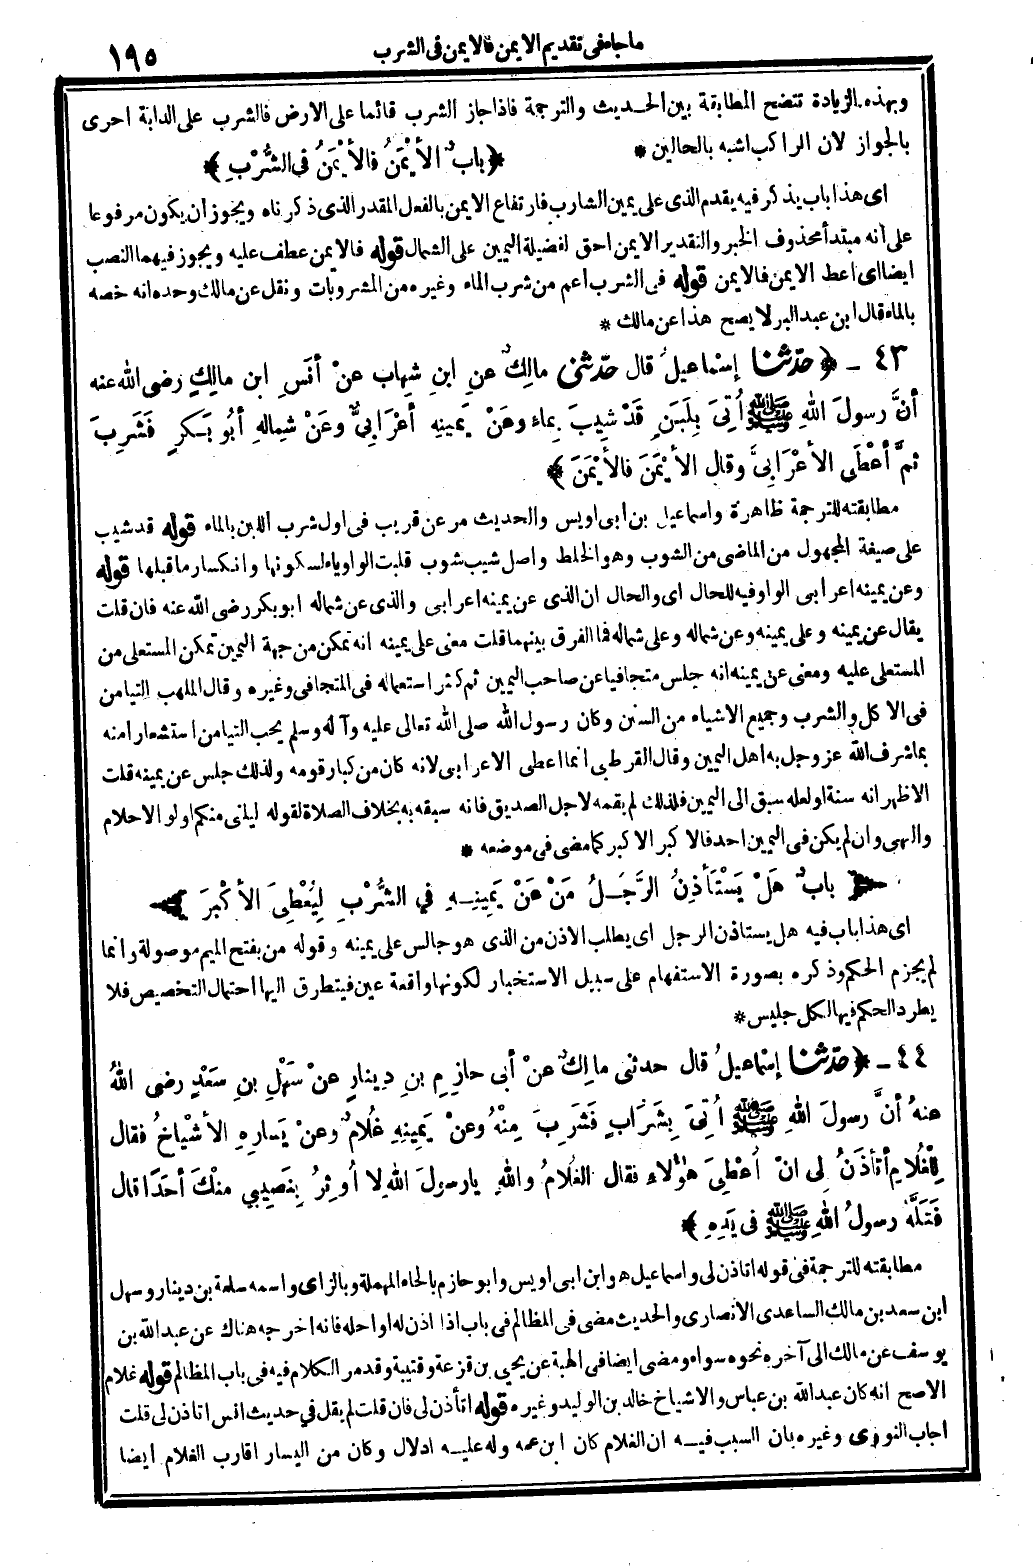 ما جاء في تقديم الايمن فالايمن في الشرب ١٩٥
وبهذه الزيادة تتضح المطابقة بين الحديث والترجمة فاذا جاز الشرب قائما على الارض فالشرب على الدابة احرى
بالجواز لان الراكب اشبه بالحالين *
﴿ بابٌ الأَيْمَنُ فالأَيْمَنُ في الشُّرْبِ ﴾
اى هذا باب يذكر فيه يقدم الذى على يمين الشارب فارتفاع الايمن بالفعل المقدر الذى ذكرناه ويجوز أن يكون مرفوعا
على أنه مبتدأ محذوف الخبر والتقدير الايمن احق لفضيلة اليمين على الشمال قوله فالايمن عطف عليه ويجوز فيهما النصب
ايضا اى اعط الايمن فالايمن قوله فى الشرب اعم من شرب الماء وغيره من المشروبات ونقل عن مالك وحده انه خصه
بالماء قال ابن عبد البر لا يصح هذا عن مالك *
٤٣ - ﴿ حدّثنا إسْماعيلُ قال حدّثنى مالِكٌ عنِ ابنِ شِهابٍ عنْ أنَسِ ابن مالِكٍ رضى الله عنه
أنَّ رسولَ اللهِ ﷺ أُتِىَ بِلَبَنٍ قَدْ شِيبَ بِماءٍ وعَنْ يَمِينِهِ أعْرَابِىٌّ وعَنْ شِمالِهِ أبُو بَـكرٍ فَشَرِبَ
ثمَّ أعْطَى الأعْرَابِىَّ وقال الأيْمَنَ فالأيْمَنَ ﴾
مطابقته للترجمة ظاهرة واسماعيل بن أبى اويس والحديث مر عن قريب فى اول شرب اللبن بالماء قوله قد شيب
على صيغة المجهول من الماضى من الشوب وهو الخلط واصل شيب شوب قلبت الواو ياء لسكونها وانكسار ما قبلها قوله
وعن يمينه اعرابى الواو فيه للحال اى والحال ان الذى عن يمينه اعرابى والذى عن شماله ابو بكر رضى الله عنه فان قلت
يقال عن يمينه وعلى يمينه وعن شماله وعلى شماله فما الفرق بينهما قلت معنى على يمينه انه تمكن من جهة اليمين تمكن المستعلى من
المستعلى عليه ومعنى عن يمينه انه جلس متجافيا عن صاحب اليمين ثم كثر استعماله فى المتجافى وغيره وقال المهلب التيامن
فى الاكل والشرب وجميع الاشياء من السنن وكان رسول الله صلى الله تعالى عليه وآله وسلم يحب التيامن استشعارا منه
بما شرف الله عز وجل به اهل اليمين وقال القرطبى انما اعطى الاعرابى لانه كان من كبار قومه ولذلك جلس عن يمينه قلت
الاظهر انه سنة او لعله سبق الى اليمين فلذلك لم يقمه لاجل الصديق فانه سبقه به بخلاف الصلاة لقوله ليلنى منكم اولو الاحلام
والنهى وان لم يكن فى اليمين احد فالاكبر الاكبر كما مضى فى موضعه *
﴿ بابٌ هَلْ يَسْتَأْذِنُ الرَّجُـلُ مَنْ عَنْ يَمِينِـهِ في الشُّرْبِ لِيُعْطِىَ الأكْبَرَ ﴾
اى هذا باب فيه هل يستاذن الرجل اى يطلب الاذن من الذى هو جالس على يمينه وقوله من بفتح الميم موصولة وانما
لم يجزم الحكم وذكره بصورة الاستفهام على سبيل الاستخبار لكونها واقعة عين فيتطرق اليها احتمال التخصيص فلا
يطرد الحكم فيها لكل جليس *
٤٤ - ﴿ حدّثنا إسْماعيلُ قال حدثنى مالِكٌ عنْ أبى حازِمِ بنِ دِينارٍ عنْ سَهْلِ بنِ سَعْدٍ رضى اللهُ
عنهُ أنَّ رسولَ اللهِ ﷺ أُتِىَ بِشَرَابٍ فَشَرِبَ مِنْهُ وعنْ يَمِينِهِ غُلامٌ وعنْ يَسارِهِ الأشْياخُ فقال
لِلْغُلامِ أتَأْذَنُ لِى انْ أُعْطِىَ هؤُلاءِ فقال الغُلامُ واللهِ يارسولَ اللهِ لا أُوثِرُ بِنَصِيبي مِنْكَ أحَدًا قال
فَتَلَّهُ رسولُ اللهِ ﷺ فى يَدِهِ ﴾
مطابقته للترجمة فى قوله اتاذن لى واسماعيل هو ابن ابى اويس وابو حازم بالحاء المهملة وبالزاى واسمه سلمة بن دينار وسهل
ابن سعد بن مالك الساعدى الأنصارى والحديث مضى فى المظالم فى باب اذا اذن له او احله فانه اخرجه هناك عن عبد الله بن
يوسف عن مالك الى آخره نحوه سواء ومضى ايضا فى الهبة عن يحيى بن قزعة وقتيبة وقد مر الكلام فيه فى باب المظالم قوله غلام
الاصح انه كان عبد الله بن عباس والاشياخ خالد بن الوليد وغيره قوله اتأذن لى فان قلت لم يقل في حديث انس اتاذن لى قلت
اجاب النووى وغيره بان السبب فيـه ان الغلام كان ابن عمه وله عليـه ادلال وكان من اليسار اقارب الغلام ايضا